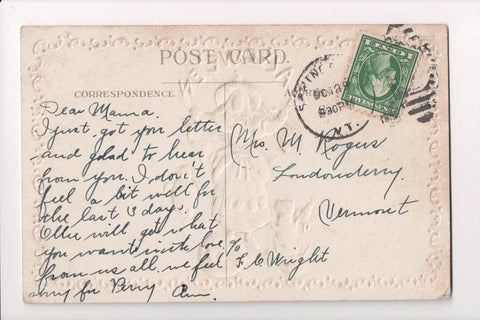 POST CARD.
CORRESPONDENCE
Dear Mama.
I just got you letter
and glad to hear
from you. I don't
feel a bit well for
the last 3 days.
Ollie will get what
you want with love
from us all, we feel
sorry for Perry Ann.
Mrs. M Rogus
Londonderry
Vermont
c/o F. C. Wright